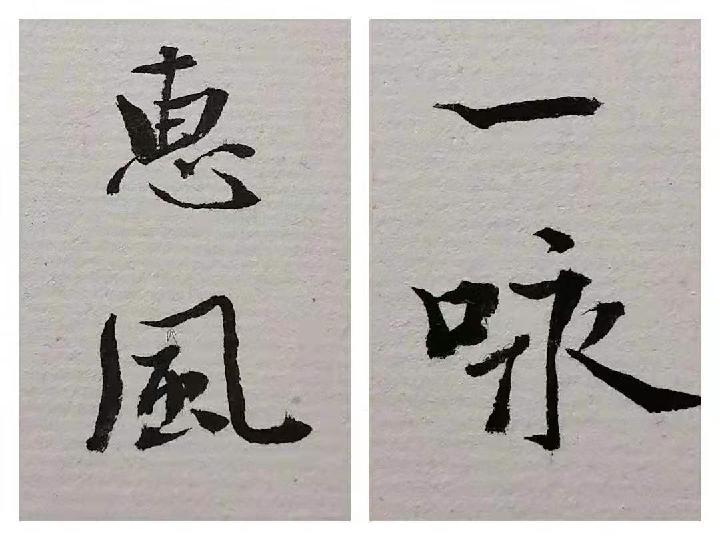 惠風
一咏